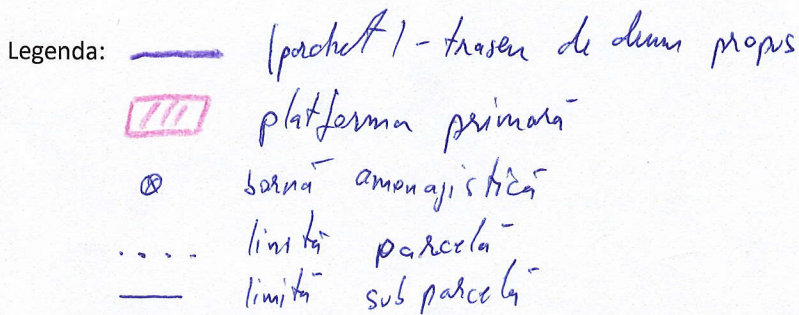 Legenda: (pachet) - traseu de drum propus
platforma primară
bornă amenajistică
limită parcelă
limită subparcelă